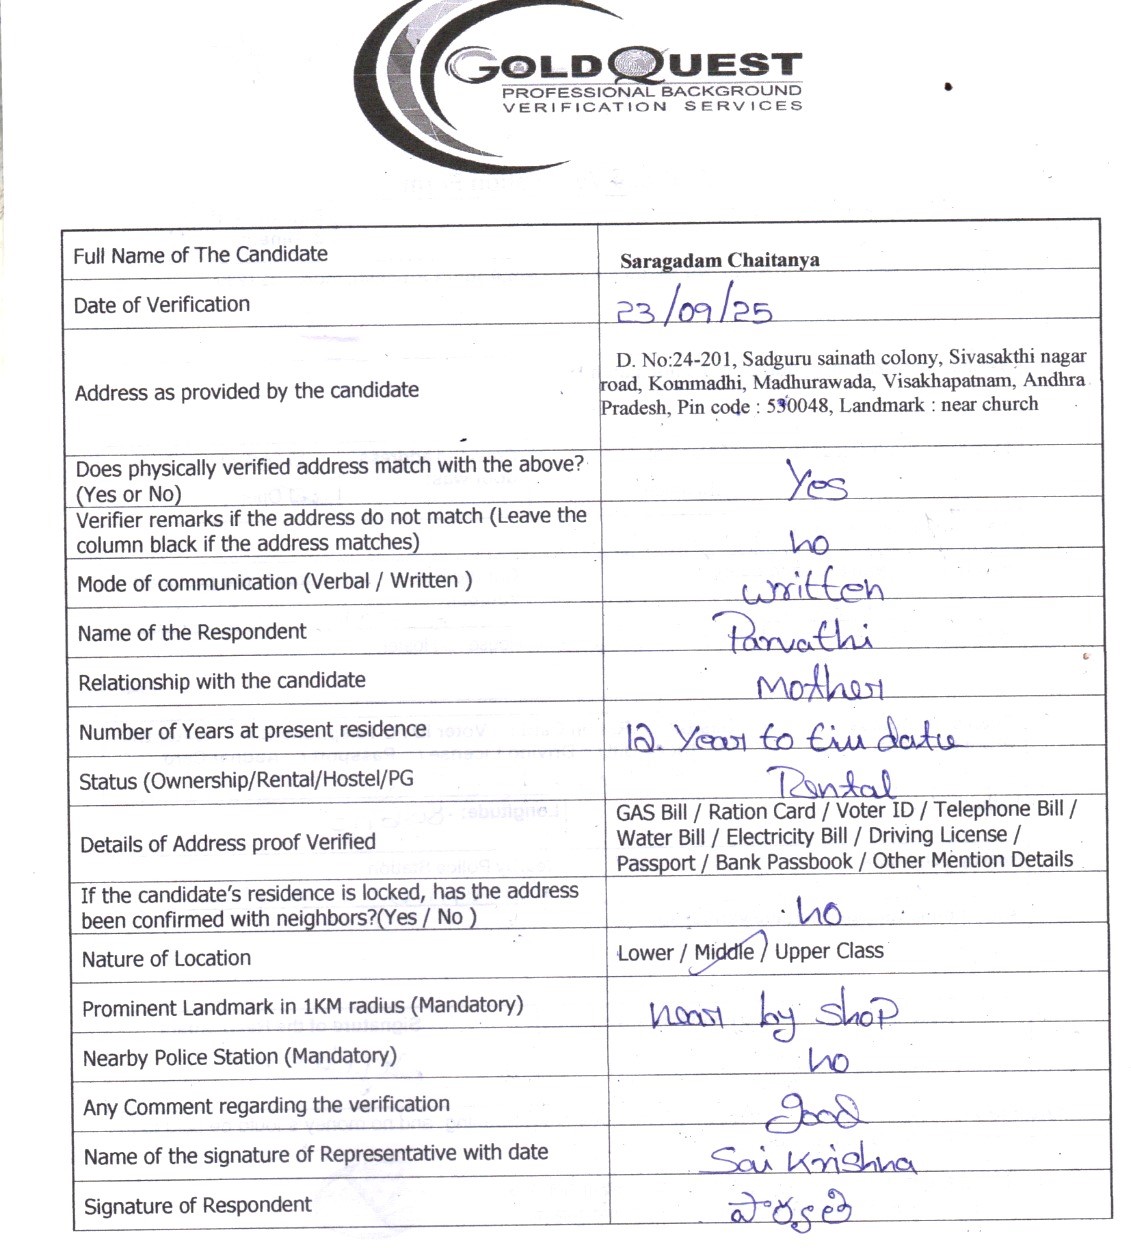 GOLDQUEST
PROFESSIONAL BACKGROUND
VERIFICATION SERVICES
Full Name of The Candidate
Saragadam Chaitanya
Date of Verification
23/09/25
Address as provided by the candidate
D. No:24-201, Sadguru sainath colony, Sivasakthi nagar
road, Kommadhi, Madhurawada, Visakhapatnam, Andhra
Pradesh, Pin code : 530048, Landmark : near church
Does physically verified address match with the above?
(Yes or No)
Yes
Verifier remarks if the address do not match (Leave the
column black if the address matches)
no
Mode of communication (Verbal / Written )
written
Name of the Respondent
Parvathi
Relationship with the candidate
Mother
Number of Years at present residence
12. Year to tiu date
Status (Ownership/Rental/Hostel/PG
Rental
Details of Address proof Verified
GAS Bill / Ration Card / Voter ID / Telephone Bill /
Water Bill / Electricity Bill / Driving License /
Passport / Bank Passbook / Other Mention Details
If the candidate's residence is locked, has the address
been confirmed with neighbors?(Yes / No )
no
Nature of Location
Lower / Middle / Upper Class
Prominent Landmark in 1KM radius (Mandatory)
near by shop
Nearby Police Station (Mandatory)
no
Any Comment regarding the verification
good
Name of the signature of Representative with date
Sai Krishna
Signature of Respondent
పార్వతి